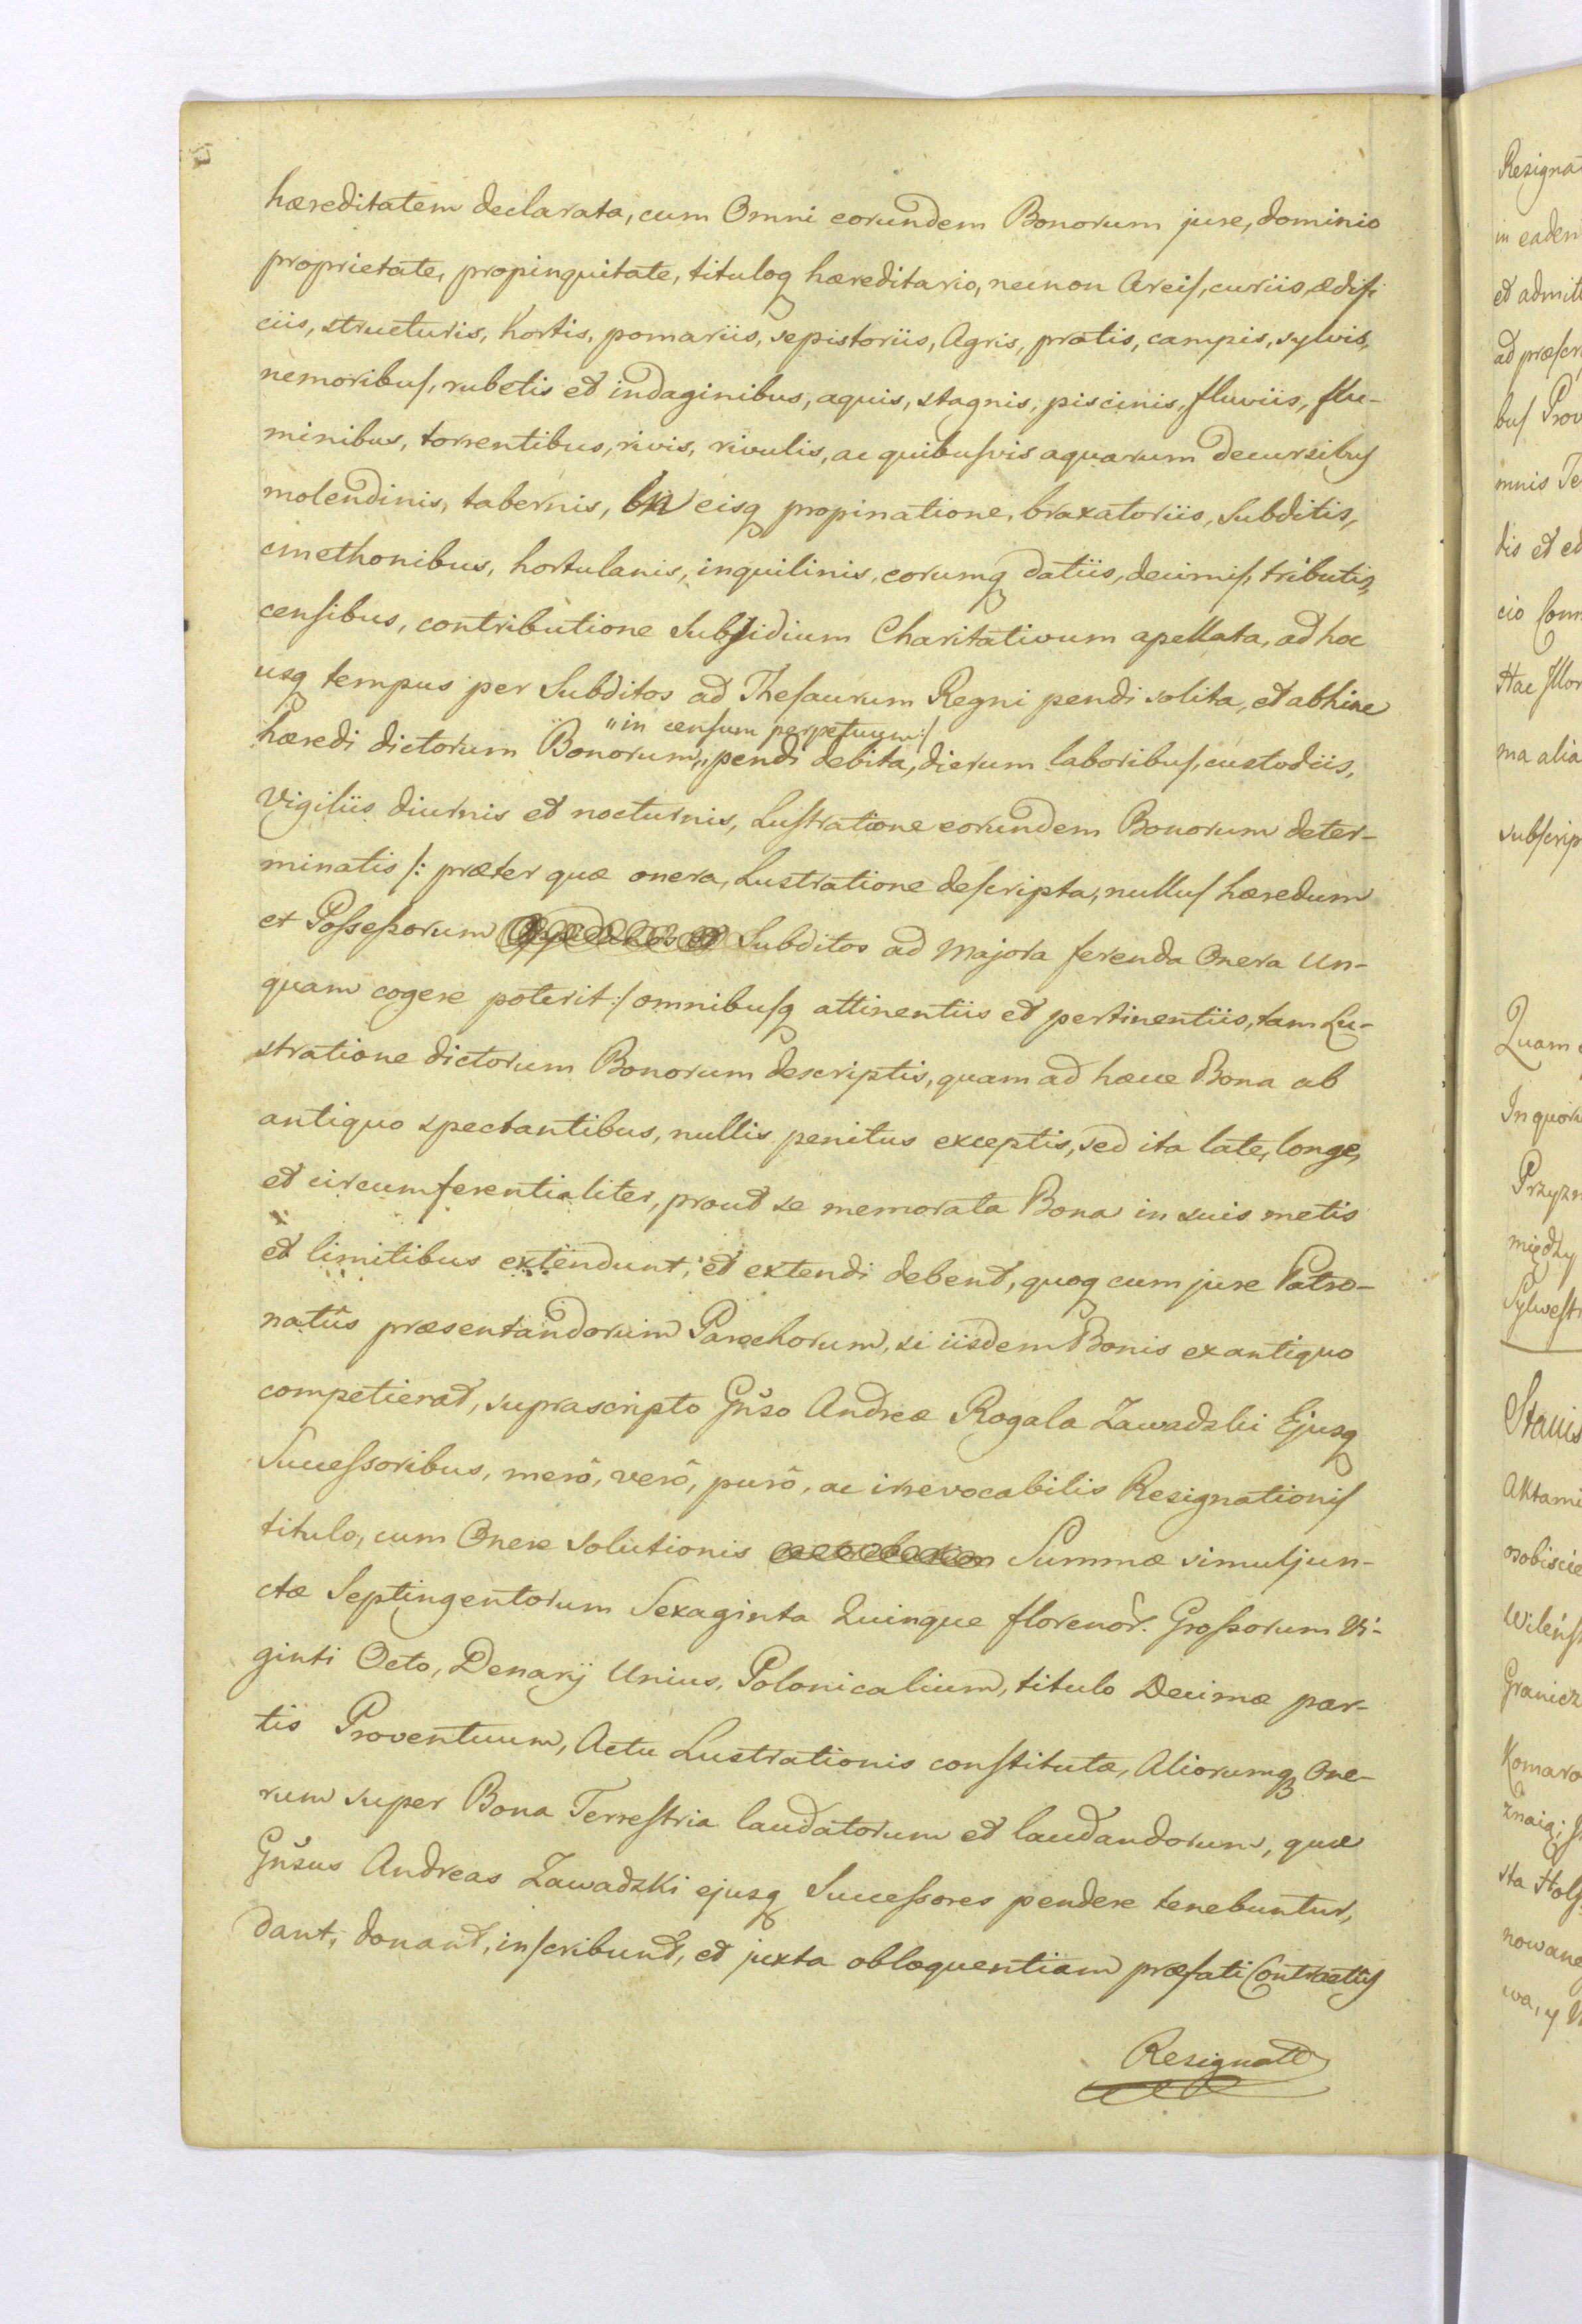 hæreditatem declarata, cum Omni eorundem Bonorum jure, dominio
proprietate, propinquitate, tituloq hæreditario, necnon Areis, curiis, ædifi
ciis, structuris, hortis, pomariis, sepistoriis, Agris, pratis, campis, sylvis,
nemoribus, rubetis et indaginibus, aquis, stagnis, piscinis, fluviis, flu-
minibus, torrentibus, rivis, rivulis, ac quibusvis aquarum decursibus
molendinis, tabernis, in eisq propinatione, braxatoriis, Subditis,
cmethonibus, hortulanis, inquilinis, eorumq datiis, decimis, tributis,
censibus, contributione Subsidium Charitativum apellata, ad hoc
usq tempus per Subditos ad Thesaurum Regni pendi solita, et abhinc
"in censum perpetuum:/
hæredi dictorum Bonorum," pendi debita, dierum laboribus, custodiis,
Vigiliis diurnis et nocturnis, Lustratione eorundem Bonorum deter-
minatis /: præter quæ onera, Lustratione descripta, nullus hæredum
et Possessorum Subditos ad Majora ferenda Onera un-
quam cogere poterit :/ omnibusq attinentiis et pertinentiis, tam Lu-
stratione dictorum Bonorum descriptis, quam ad hæce Bona ab
antiquo spectantibus, nullis penitus exceptis, sed ita late, longe,
et circumferentialiter, prout se memorata Bona in suis metis
et limitibus extendunt, et extendi debent, quoq cum jure Patro-
natûs præsentandorum Parochorum, si iisdem Bonis ex antiquo
competierat, suprascripto Gñso Andreæ Rogala Zawadzki Ejusq
Successoribus, merô, verô, purô, ac irrevocabilis Resignationis
titulo, cum Onere solutionis Summæ simuljun-
ctæ Septingentorum Sexaginta Quinque florenor. Grossorum Vi-
ginti Octo, Denarij Unius, Polonicalium, titulo Decimæ par-
tis Proventuum, Actu Lustrationis constitutæ, Aliorumq One-
rum super Bona Terrestria laudatorum et laudandorum, quæ
Gñsus Andreas Zawadzki ejusq Successores pendere tenebuntur,
dant, donant, inscribunt, et juxta obloquentiam præfati Contractus
Resignat
Resigna
in eadem
et admit
ad præscr
bus Prov
mnis Te
dis et
cio Com
Hac
ma alia
subscrip
Quam
In quoru
Przyzn
między
Sylwest
Stanis
Aktami
osobiscie
Wileńs
Granicz
Komaro
żnaią;
sta
nowane
wa, y